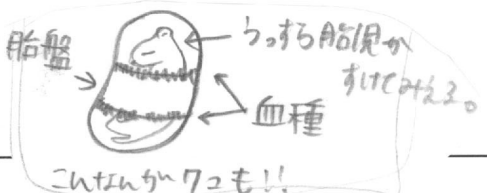 胎盤
うっすら胎児が
すけてみえる。
血種
こんなんが7コも!!